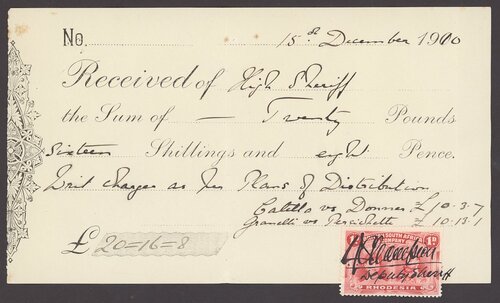 No. 15th December 1910
Received of High Sheriff
the Sum of — Twenty Pounds
Sixteen Shillings and eight Pence.
Writ charges as per Plans of Distribution
vs £10.3.7
vs £10.13.1
£ 20=16=8
SOUTH AFRICA
COMPANY 1d
Deputy Sheriff
RHODESIA